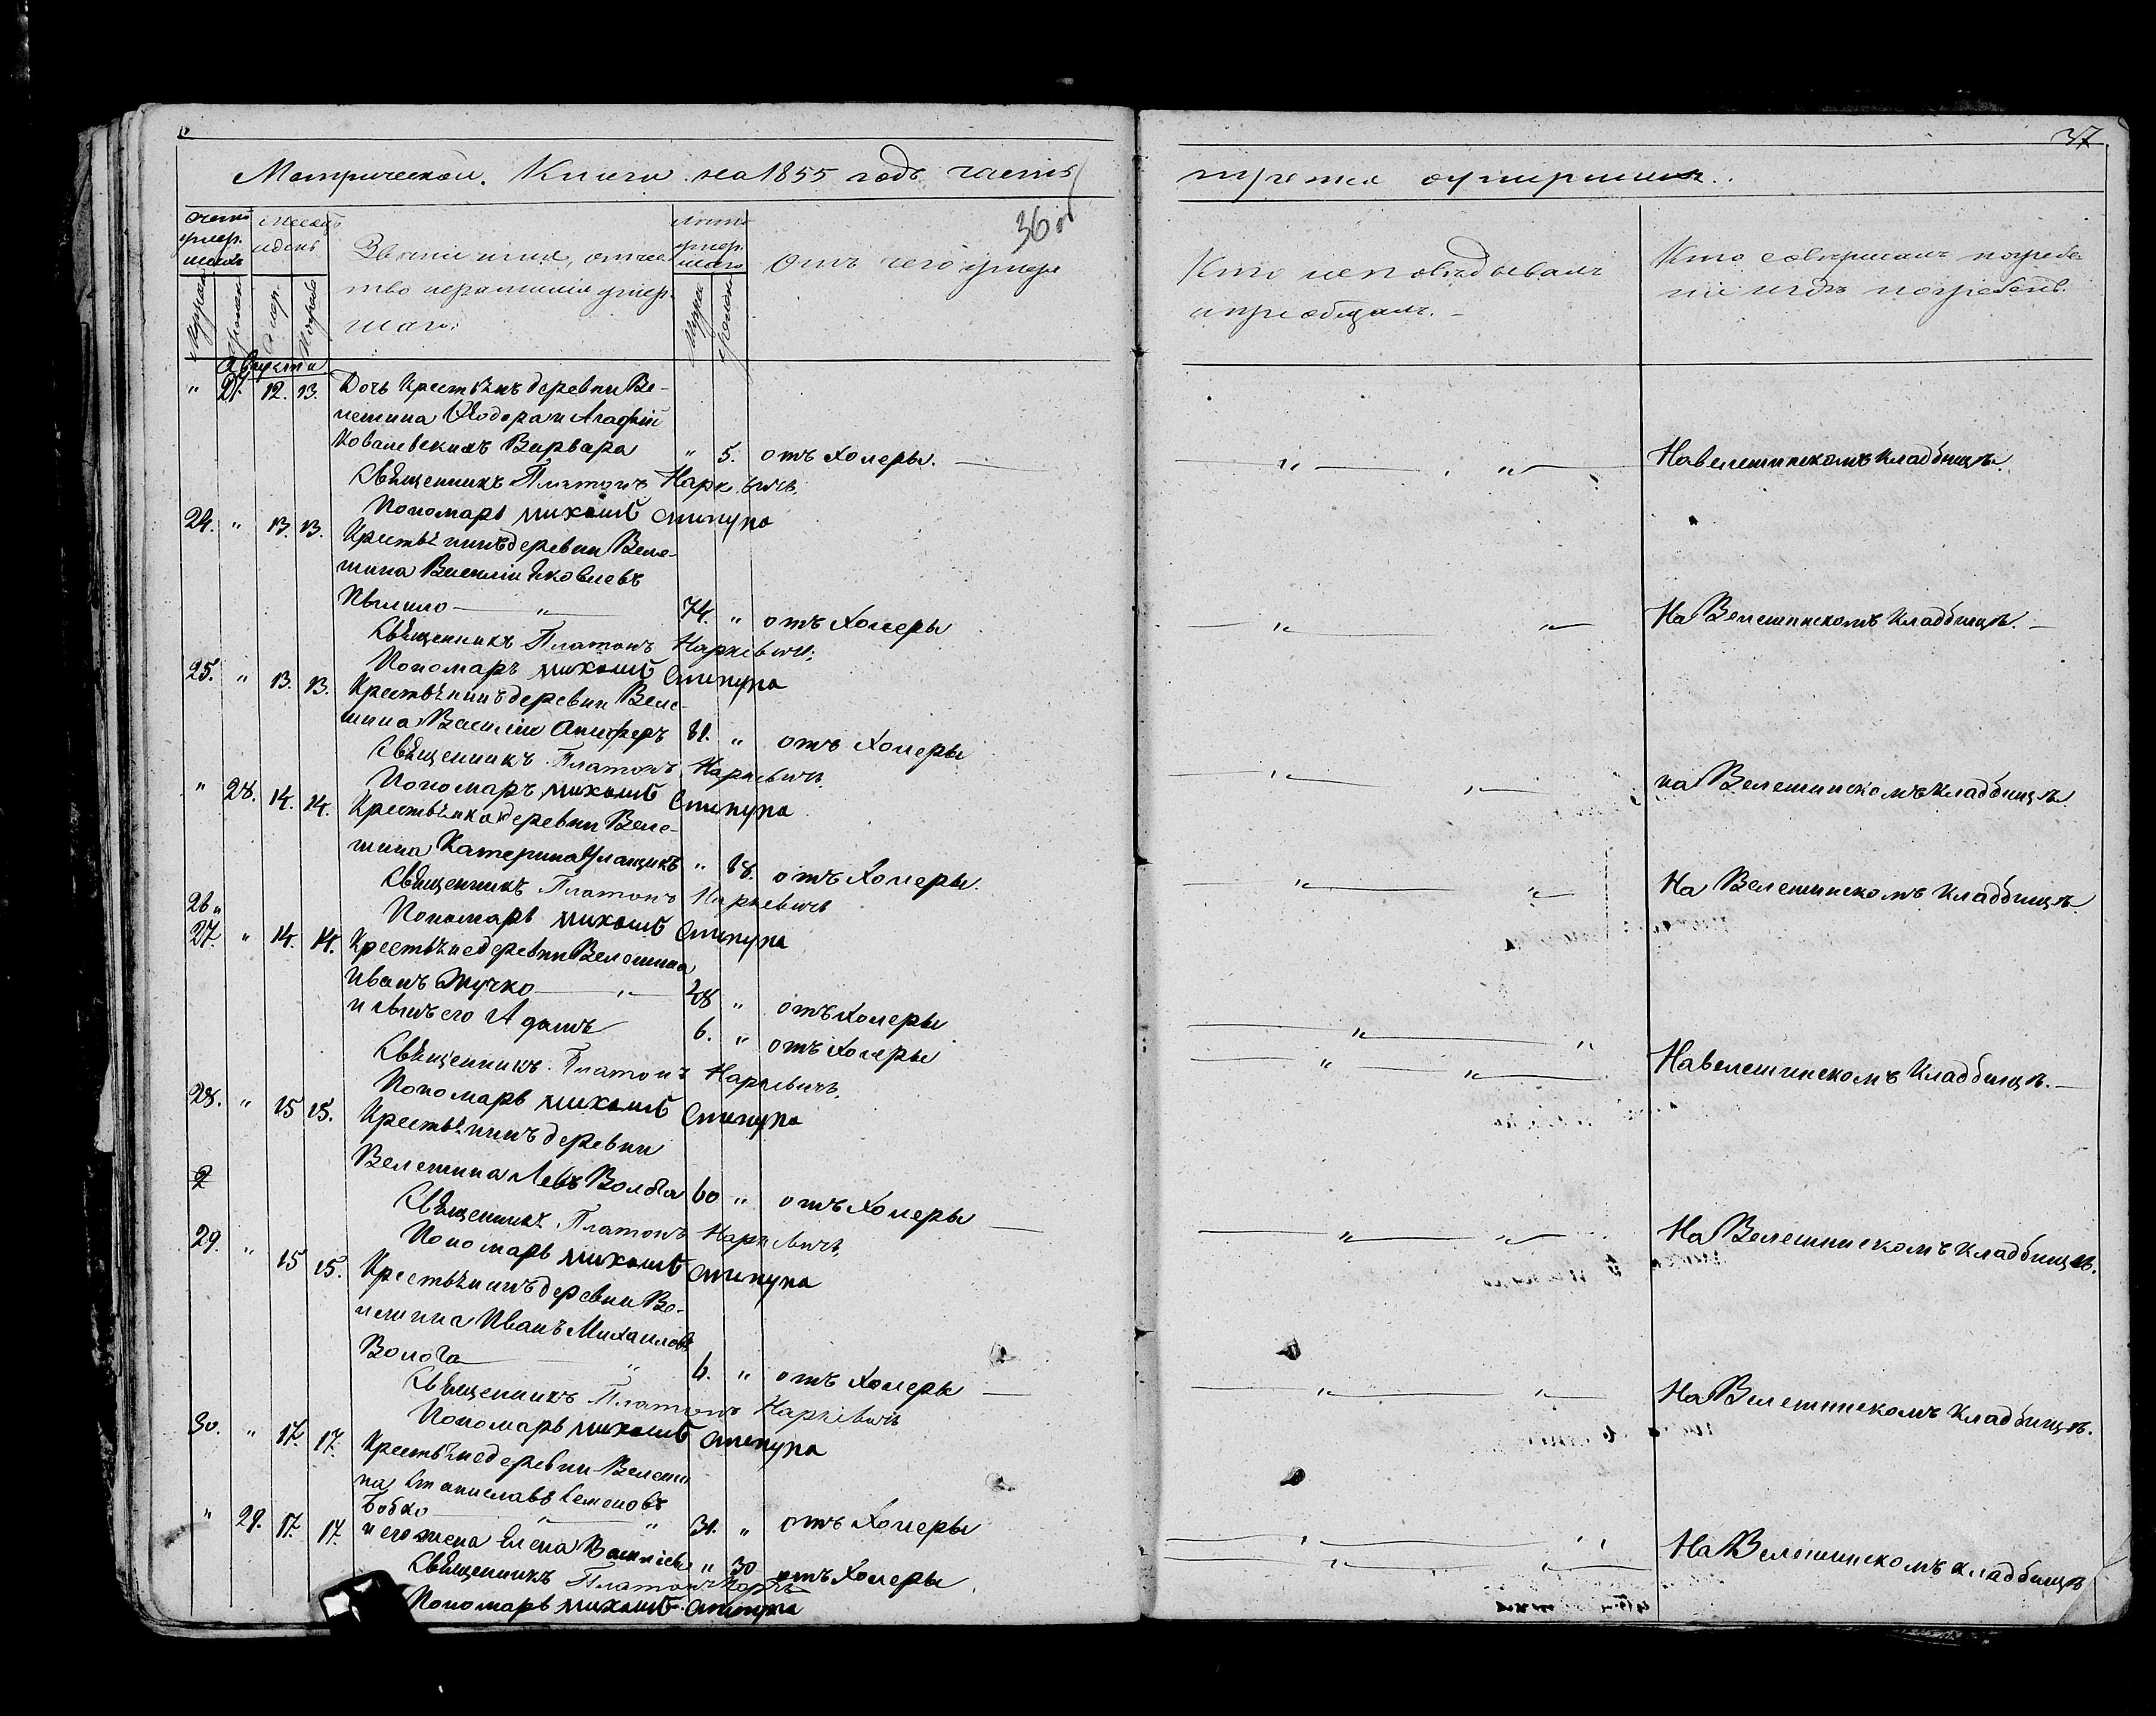 Метрической Книги на 1855 годъ часть
третья оумершихъ.
37
36 об
Счетъ умершихъ
Месяцъ и день
Званіе имя, отчество и фамилія умершаго.
Лѣта умершаго
Отъ чего умеръ
Кто исповѣдывалъ и пріобщалъ.
Кто совершалъ погребеніе и гдѣ погребенъ.
Августа
" 27. 12. 13. Дочь Крестьянъ деревни Ве-
лешина Ѳеодора и Агафіи
Ковалевскихъ Варвара " 5. отъ Холеры. На велешинскомъ Кладбищѣ.
Священникъ Платонъ Наркевичъ.
Пономарь Михаилъ Слипура
24. " 13. 13. Крестьянинъ деревни Веле-
шина Василій Яковлевъ
74. " отъ Холеры На Велешинскомъ Кладбищѣ.
Священникъ Платонъ Наркевичъ.
Пономарь Михаилъ Слипура
25. " 13. 13. Крестьянинъ деревни Веле-
шина Василій 61. " отъ Холеры на Велешинскомъ Кладбищѣ.
Священникъ Платонъ Наркевичъ
Пономарь Михаилъ Слипура
" 28. 14. 14. Крестьянка деревни Веле-
шина Катерина " 68. отъ Холеры. На Велешинскомъ Кладбищѣ.
Священникъ Платонъ Наркевичъ
Пономарь Михаилъ Слипура
26 "
27. " 14. 14. Крестьяне деревни Велешина
Иванъ Жучко 28 " отъ Холеры
и сынъ его Адамъ 6. " отъ Холеры На велешинскомъ Кладбищѣ.
Священникъ Платонъ Наркевичъ.
Пономарь Михаилъ Слипура
28. " 15 15. Крестьянинъ деревни
Велешина Левъ Волога 60 " отъ Холеры На Велешинскомъ Кладбищѣ.
Священникъ Платонъ Наркевичъ
Пономарь Михаилъ Слипура
29. " 15 15. Крестьянинъ деревни Ве-
лешина Иванъ Михаиловъ
Волога " 6. " отъ Холеры На Велешинскомъ Кладбищѣ.
Священникъ Платонъ Наркевичъ
Пономарь Михаилъ Слипура
30. " 17. 17. Крестьяне деревни Велеши
на Станиславъ Семеновъ
Бобко " 31. " отъ Холеры
" 29. 17. 17. и его жена Елена " 30 отъ Холеры На Велешинскомъ Кладбищѣ
Священникъ Платонъ
Пономарь Михаилъ Слипура